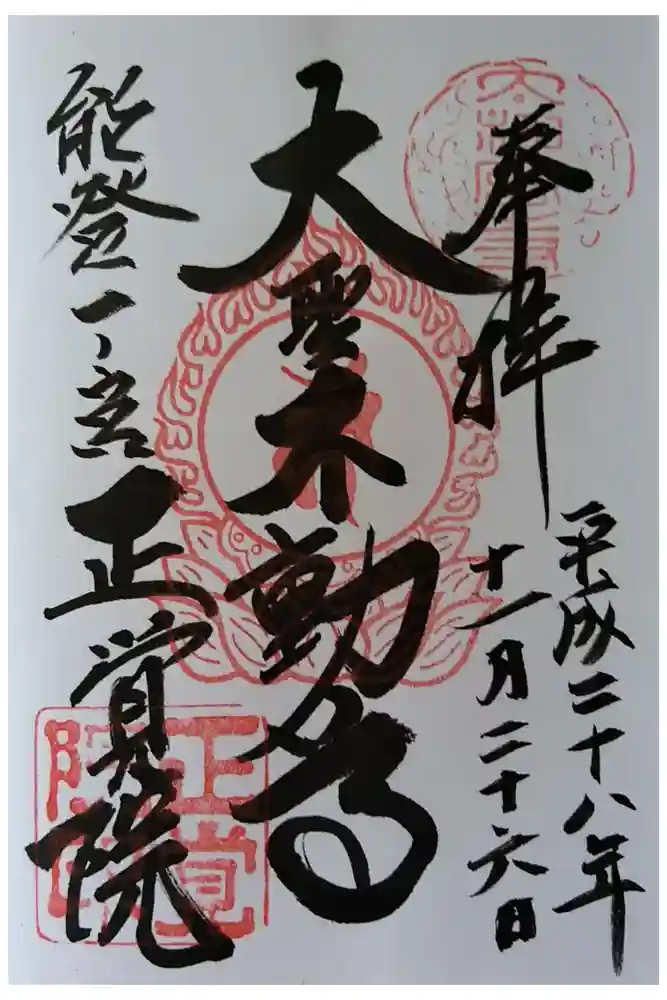 奉拝
平成二十八年
十一月二十六日
大聖不動尊
能登一ノ宮
正覚院
正覚院